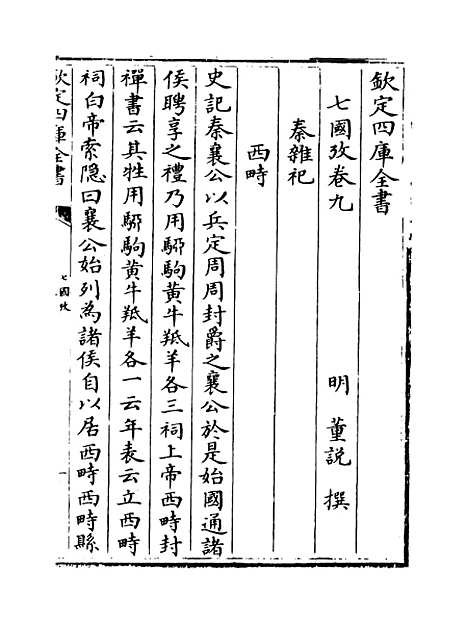 欽定四庫全書
七國攷卷九
明 董說 撰
秦雜祀
西畤
史記秦襄公以兵定周周封爵之襄公於是始國通諸
侯聘享之禮乃用騮駒黄牛羝羊各三祠上帝西畤封
禪書云其牲用騮駒黄牛羝羊各一云年表云立西畤
祠白帝索隐曰襄公始列為諸侯自以居西畤西畤縣
欽定四庫全書
七國攷
一